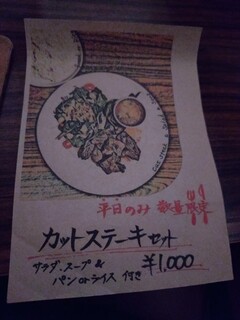 平日のみ 数量限定
カットステーキセット
サラダ・スープ &
¥1,000
パンorライス 付き